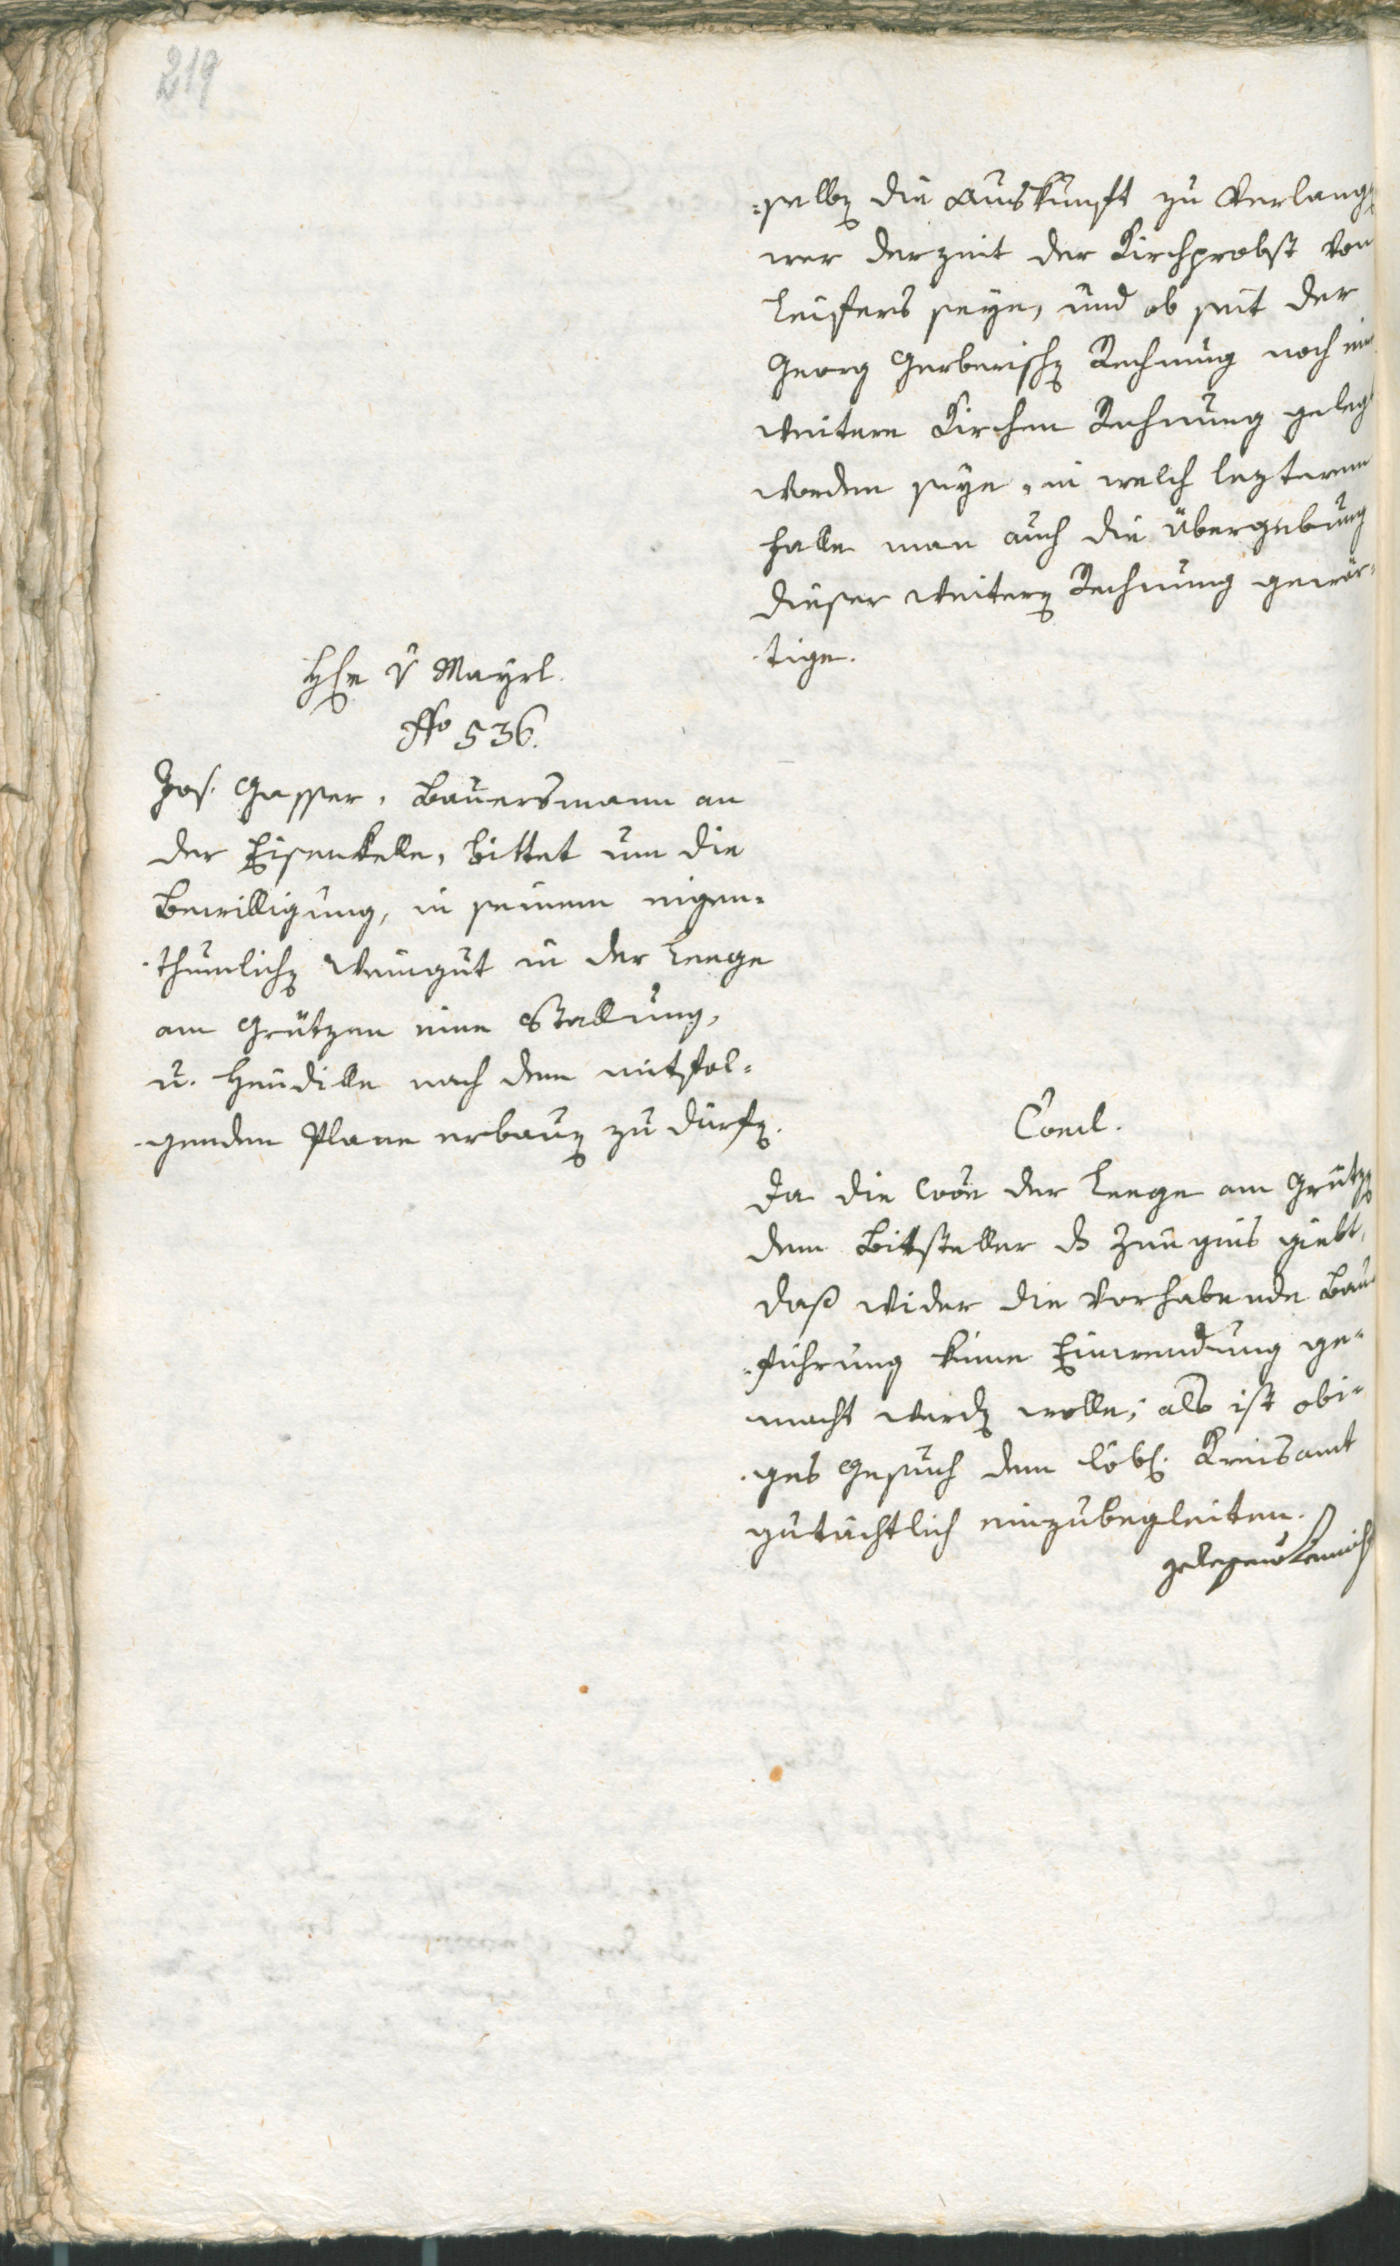 219
selben die Auskunft zu Verlangen
wer derzeit der Kirchprobst von
Leifers seye, und ob seit der
Georg Gerberischen Rechnung noch eine
weitere Kirchen Rechnung gelegt
worden seye, in welch lezterem
falle man auch die Übergebung
dieser weiteren Rechnung gewär¬
tige.
v Mayrl.
Nro 536.
Jos. Gasser, Bauersmann an
der Eisenkelle, bittet um die
Bewilligung, in seinem eigen¬
thumlichen Weingut in der Leege
am Grützen eine Stallung,
u. Heudille nach dem mitfol¬
genden Plane erbauen zu dürfen.
Concl.
Da die der Leege am Grützen
dem Bittsteller das Zeugnis giebt,
daß wider die Vorhabende Bau
führung keine Einwendung ge¬
macht werden wolle; als ist obi¬
ges Gesuch dem löbl. Kreisamt
gutächtlich einzubegleiten.